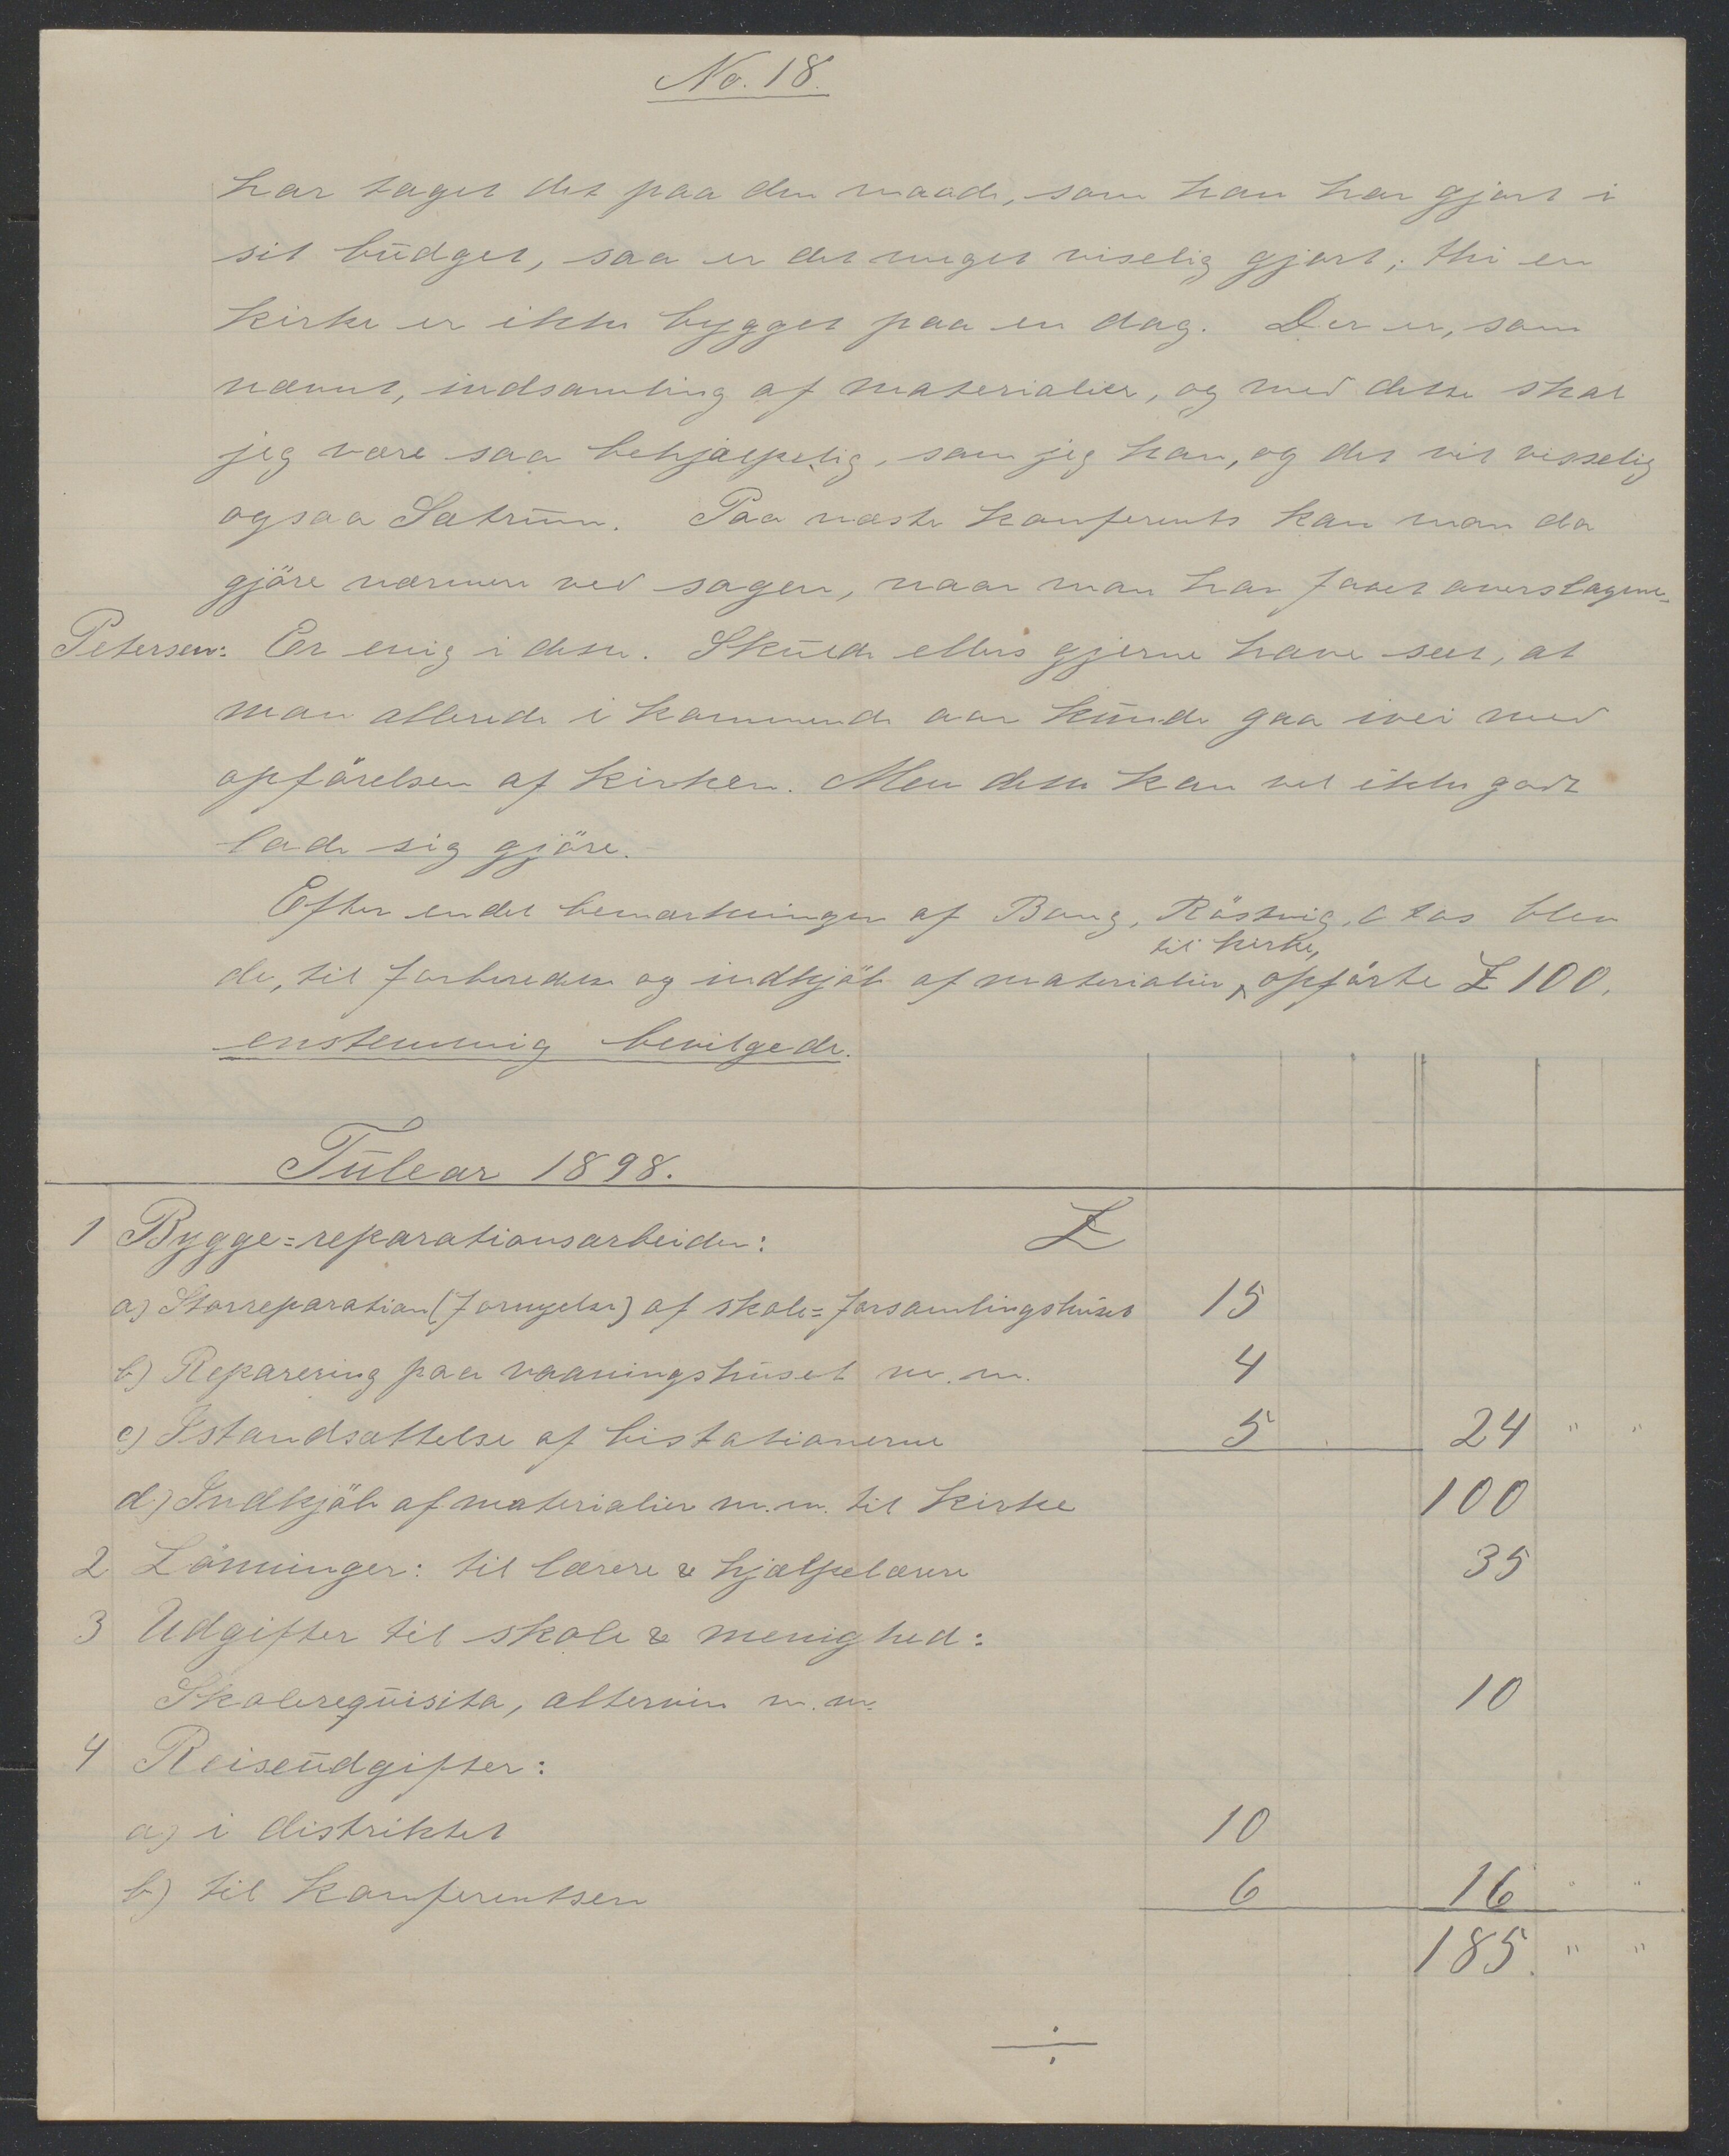 No. 18.
har taget det paa den maade, som han har gjort i
sit budget, saa er det meget viselig gjort; thi en
kirke er ikke bygget paa en dag. Der er, som
nævnt, indsamling af materialier, og med dette skal
jeg være saa behjælpelig, som jeg kan, og det vil visselig
ogsaa Sætrum. Paa næste konferents kan man da
gjöre nærmere ved sagen, naar man har faaet overslagene.
Petersen: Er enig i dette. Skulde ellers gjerne have seet, at
man allerede i kommende aar kunde gaa ivei med
opförelsen af kirken. Men dette kan vel ikke godt
lade sig gjöre.
Efter endel bemærkninger af Bang, Röstvig, Aas blev
til kirke,
de, til forberedelse og indkjöb af materialier, opförte £ 100,
enstemmig bevilgede.
Tulear 1898.
1 Bygge=reparationsarbeider: £
a) Storreparation (fornyelse) af skole= forsamlingshuset 15
b) Reparering paa vaaningshuset m. m. 4
c) Istandsættelse af bistationerne 5 24 " "
d) Indkjöb af materialier m. m. til kirke 100
2 Lönninger: til lærere & hjælpelærere 35
3 Udgifter til skole & menighed:
Skolerequisita, altervin m. m. 10
4 Reiseudgifter:
a) i distriktet 10
b) til konferentsen 6 16 " "
185. " "